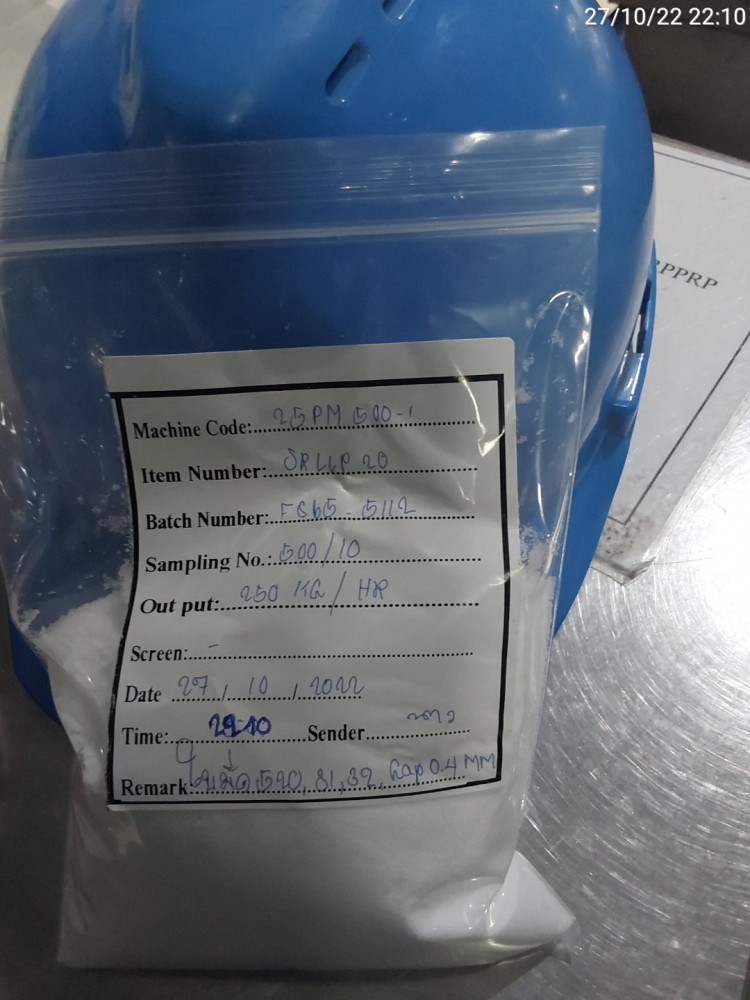 27/10/22 22:10
RPPRP
Machine Code: 25PM 500-1
Item Number: SRLLP 20
Batch Number: FG65-5112
Sampling No.: 500/10
Out put: 250 KG/HR
Screen: -
Date 27/10/2022
Time: 22:10 Sender
Remark ใบมีด 520, 31, 32, Gap 0.4 MM